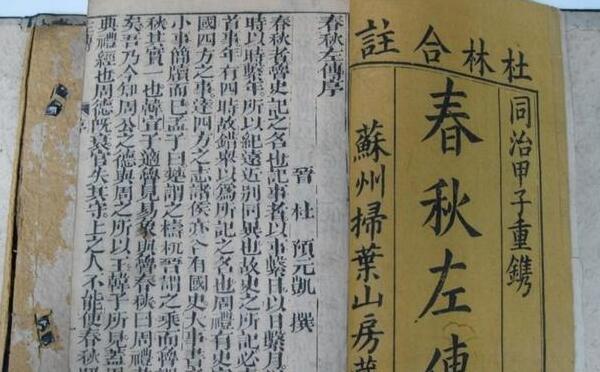 杜林合註
同治甲子重鐫
春秋左傳
蘇州掃葉山房
春秋左傳序
晉 杜 預元凱 撰
春秋者魯史記之名也記事者以事繫日以日繫月
時以時繫年所以紀遠近別同異也故史之所記必
首事年有四時故錯舉以爲所記之名也周禮有史
國四方之事達四方之志諸侯亦各有國史大事書
小事簡牘而已孟子曰楚謂之檮杌晉謂之乘而魯
秋其實一也韓宣子適魯見易象與魯春秋曰周禮
矣吾乃今知周公之德與周之所以王韓子所見蓋周
典禮經也周德旣衰官失其守上之人不能使春秋昭